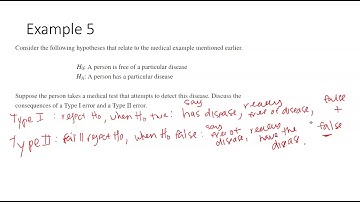 Example 5
Consider the following hypotheses that relate to the medical example mentioned earlier.
H₀: A person is free of a particular disease
Hₐ: A person has a particular disease
Suppose the person takes a medical test that attempts to detect this disease. Discuss the
consequences of a Type I error and a Type II error.
say really false
Type I : reject H₀, when H₀ true: has disease, free of disease, +
Type II: fail reject H₀, when H₀ false: say free of disease, really have the disease, false
−